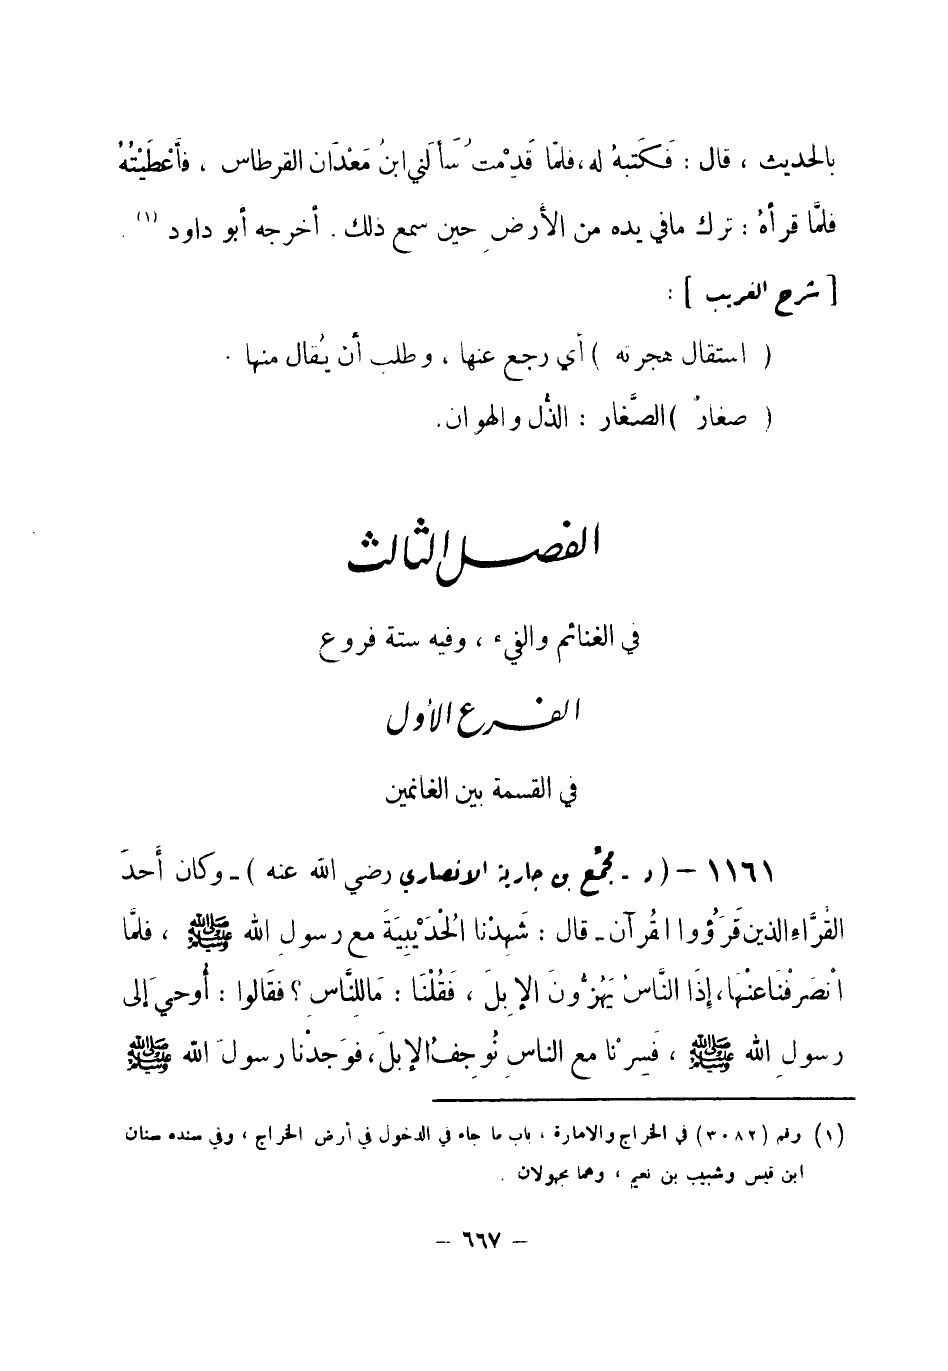 بالحديث ، قال : فَكَتبهُ له ، فلمّا قَدِمْتُ سَأَلَني ابنُ مَعْدَان القرطاس ، فأَعْطَيْتُهُ
فلمَّا قرأهُ : ترك مافي يده من الأرضِ حين سمع ذلك . أخرجه أبو داود (١) .
[ شرح الغريب ] :
( استقال هجرته ) أي رجع عنها ، وطلب أن يُقال منها .
( صغارٌ ) الصَّغار : الذُّل والهوان .
الفصل الثالث
في الغنائم والفيء ، وفيه ستة فروع
الفرع الأول
في القسمة بين الغانمين
١١٦١ – ( د - مجمِّع بن جارية الانصاري رضي الله عنه ) - وكان أَحدَ
القُرَّاءِ الذين قَرَؤُوا القُرآن - قال : شَهِدْنا الْحُدَيْبِيَةَ مع رسولِ الله ﷺ ، فلمَّا
انْصَرفْنَا عنْهَا ، إِذَا النَّاسُ يَهُزُّونَ الإِبلَ ، فَقُلْنَا : مَا لِلنَّاسِ ؟ فقَالوا : أُوحيَ إلى
رسولِ الله ﷺ ، فَسِرْنا مع الناسِ نُوجِفُ الإبلَ ، فوَجدْنا رسولَ الله ﷺ
(١) رقم (٣٠٨٢) في الخراج والامارة ، باب ما جاء في الدخول في أرض الخراج ، وفي سنده سنان
ابن قيس وشبيب بن نعيم ، وهما مجهولان .
– ٦٦٧ –